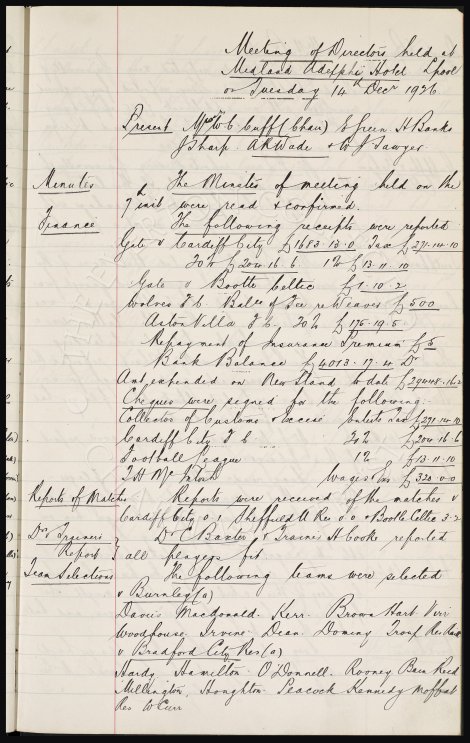 Meeting of Directors held at
Midland Adelphi Hotel L'pool
on Tuesday 14th Decr 1926
Present Messrs W C Cuff (Chair) E Green H Banks
J Sharp. A R Wade & W J Sawyer
Minutes
The Minutes of meeting held on the
7th inst were read & confirmed.
Finance
The following receipts were reported
Gate v Cardiff City £1683.13.0 Tax £271.14.10
20% £204.16.6. 1% £13.11.10
Gate v Bootle Celtic £1.10.2
Wolves F C Balce of Fee re Weaver £500
Aston Villa F C, 20% £175.19.5
Repayment of Insurance Premium £5
Bank Balance £4013.17.4 Dr
Amt expended on New Stand to date £29448.16.2
Cheques were signed for the following:
Collector of Customs & Excise Enterts Tax £271.14.10
Cardiff City F C 20% £204.16.6
Football League 1% £13.11.10
T H McIntosh Wages & Exs £320.0.0
Reports of Matches
Reports were received of the matches v
Cardiff City 0.1 Sheffield U Res 0.0 & Bootle Celtic 3-2
Drs & Trainers
Report
Dr C Baxter & Trainer H Cooke reported
all players fit
Team Selections
The following teams were selected
v Burnley (a)
Davies Macdonald. Kerr. Brown Hart Virr
Woodhouse. Irvine. Dean. Dominy Troup Res
v Bradford City Res (a)
Hardy. Hamilton. O'Donnell. Rooney Bain Reed
Millington, Houghton. Peacock Kennedy Moffat
Res W Curr